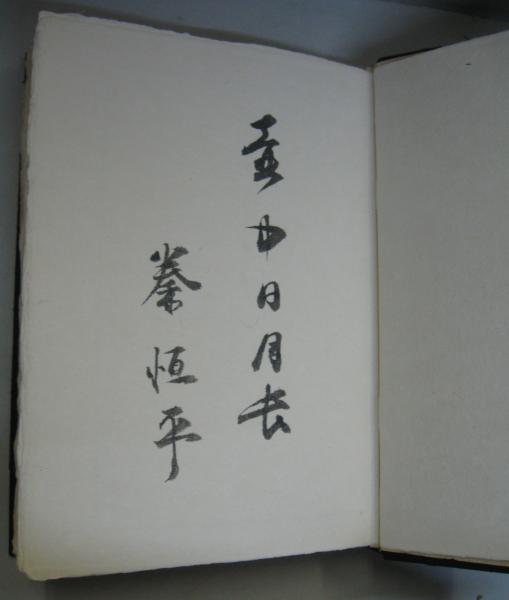 壷中日月長
秦恒平